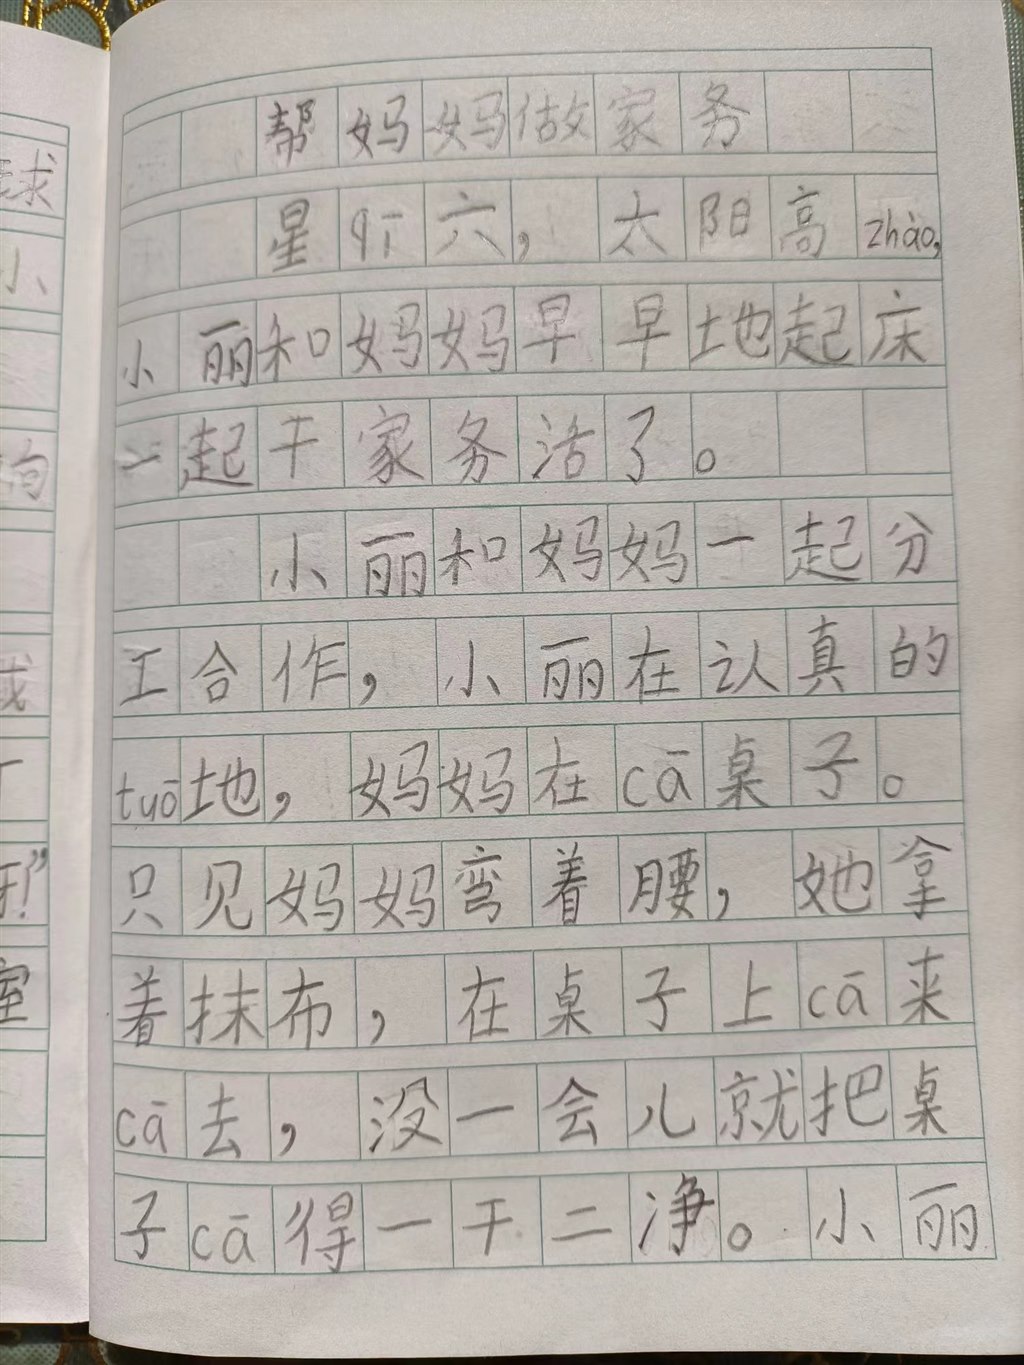 帮妈妈做家务
星qī六，太阳高zhào，
小丽和妈妈早早地起床
一起干家务活了。
小丽和妈妈一起分
工合作，小丽在认真的
tuō地，妈妈在cā桌子。
只见妈妈弯着腰，她拿
着抹布，在桌子上cā来
cā去，没一会儿就把桌
子cā得一干二净。小丽